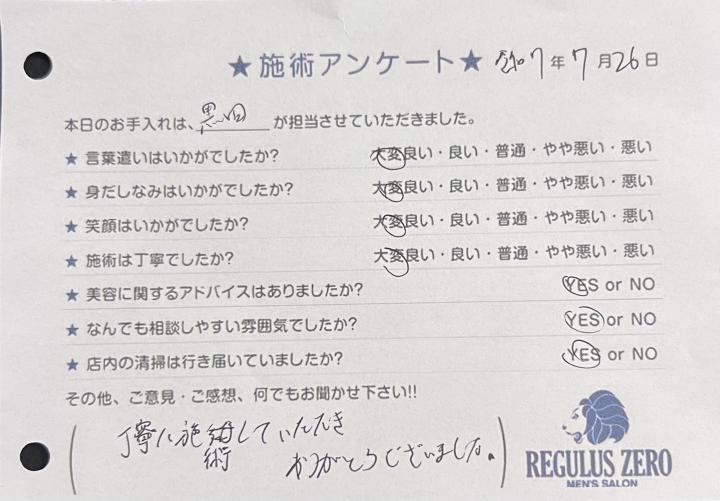 ★施術アンケート★ 令和7年7月26日
本日のお手入れは、黒田が担当させていただきました。
★ 言葉遣いはいかがでしたか? 大変良い・良い・普通・やや悪い・悪い
★ 身だしなみはいかがでしたか? 大変良い・良い・普通・やや悪い・悪い
★ 笑顔はいかがでしたか? 大変良い・良い・普通・やや悪い・悪い
★ 施術は丁寧でしたか? 大変良い・良い・普通・やや悪い・悪い
★ 美容に関するアドバイスはありましたか? YES or NO
★ なんでも相談しやすい雰囲気でしたか? YES or NO
★ 店内の清掃は行き届いていましたか? YES or NO
その他、ご意見・ご感想、何でもお聞かせ下さい!!
丁寧に施術していただき
ありがとうございました。
REGULUS ZERO
MEN'S SALON